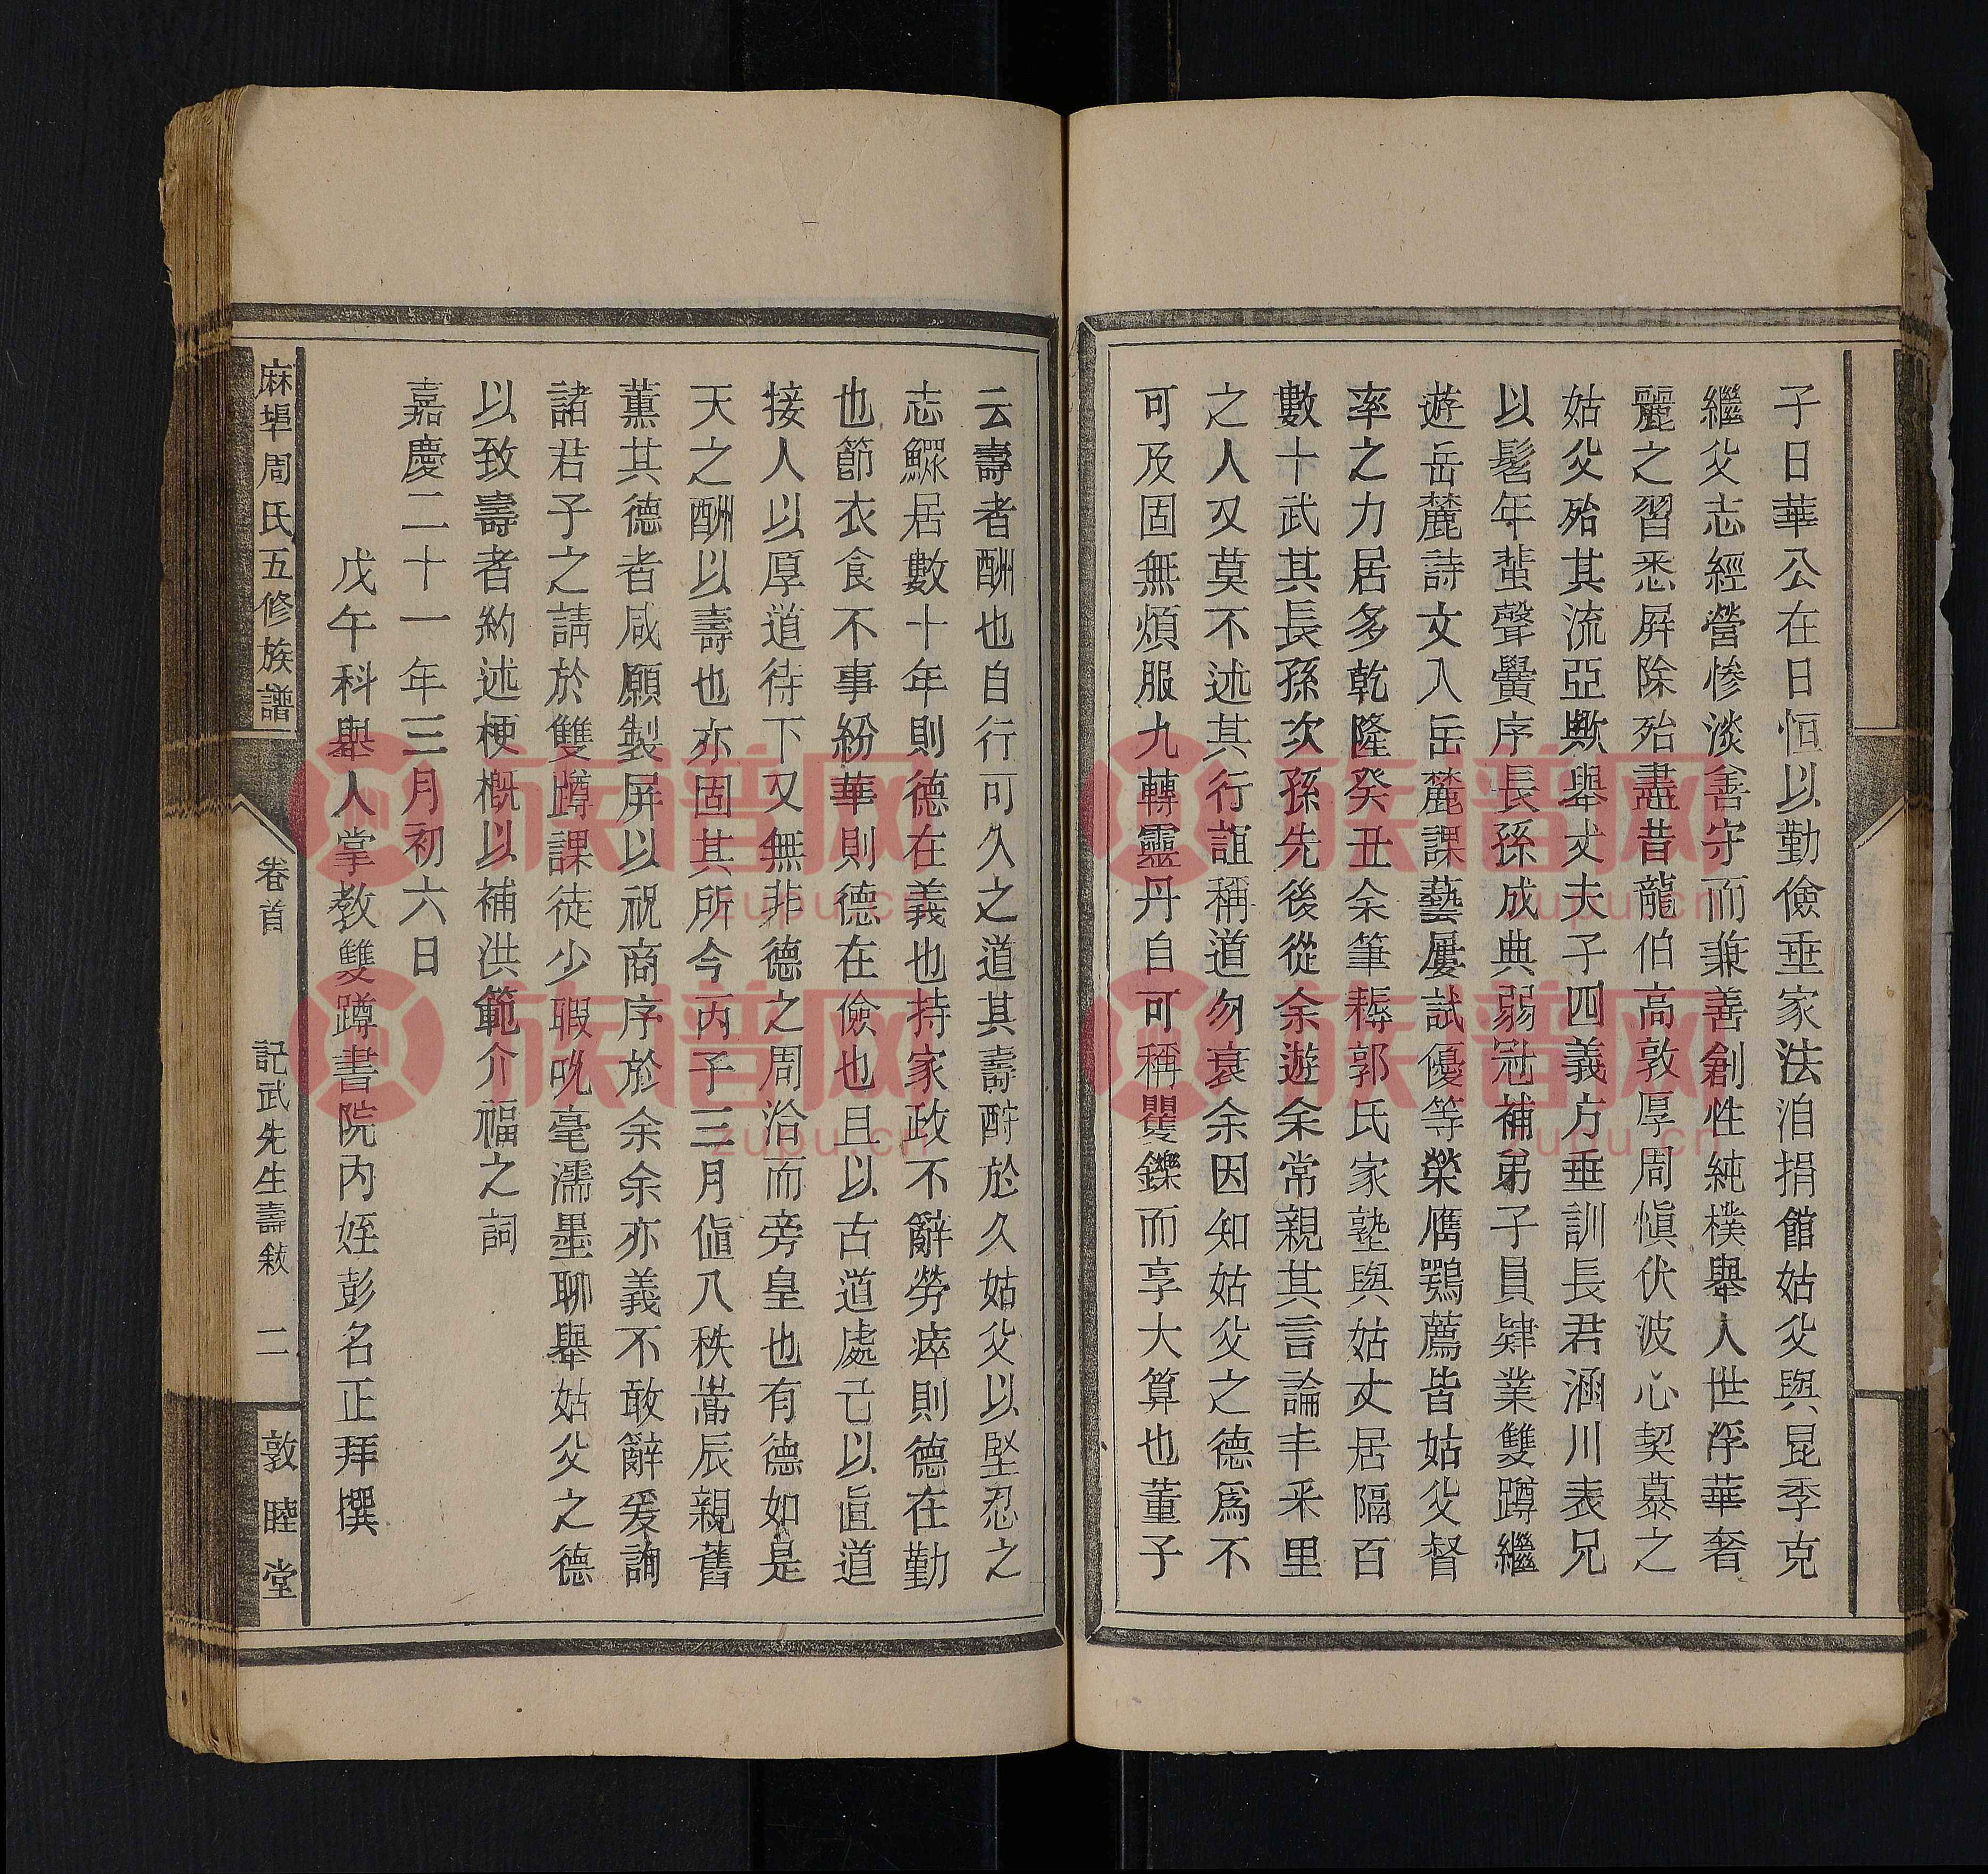 子日華公在日恒以勤儉垂家法洎捐館姑父與昆季克
繼父志經營慘淡善守而兼善創性純樸舉人世浮華奢
麗之習悉屏除殆盡昔龍伯高敦厚周慎伏波心契慕之
姑父殆其流亞歟舉丈夫子四義方垂訓長君涵川表兄
以髫年蜚聲黌序長孫成典弱冠補弟子員肄業雙蹲繼
遊岳麓詩文入岳麓課藝屢試優等榮膺鶚薦皆姑父督
率之力居多乾隆癸丑余筆耨郭氏家塾與姑丈居隔百
數十武其長孫次孫先後從余遊余常親其言論丰采里
之人又莫不述其行誼稱道勿衰余因知姑父之德爲不
可及固無煩服九轉靈丹自可稱矍鑠而享大算也董子
云壽者酬也自行可久之道其壽酧於久姑父以堅忍之
志鰥居數十年則德在義也持家政不辭勞瘁則德在勤
也節衣食不事紛華則德在儉也且以古道處己以直道
接人以厚道待下又無非德之周洽而旁皇也有德如是
天之酬以壽也亦固其所今丙子三月值八秩嵩辰親舊
薰其德者咸願製屏以祝商序於余余亦義不敢辭爰詢
諸君子之請於雙蹲課徒少暇吮毫濡墨聊舉姑父之德
以致壽者約述梗概以補洪範介福之詞
嘉慶二十一年三月初六日
戊午科舉人掌教雙蹲書院內姪彭名正拜撰
麻埠周氏五修族譜
卷首
記武先生壽敍
二
敦睦堂
族譜网
zupu.cn
族譜网
zupu.cn
族譜网
zupu.cn
族譜网
zupu.cn